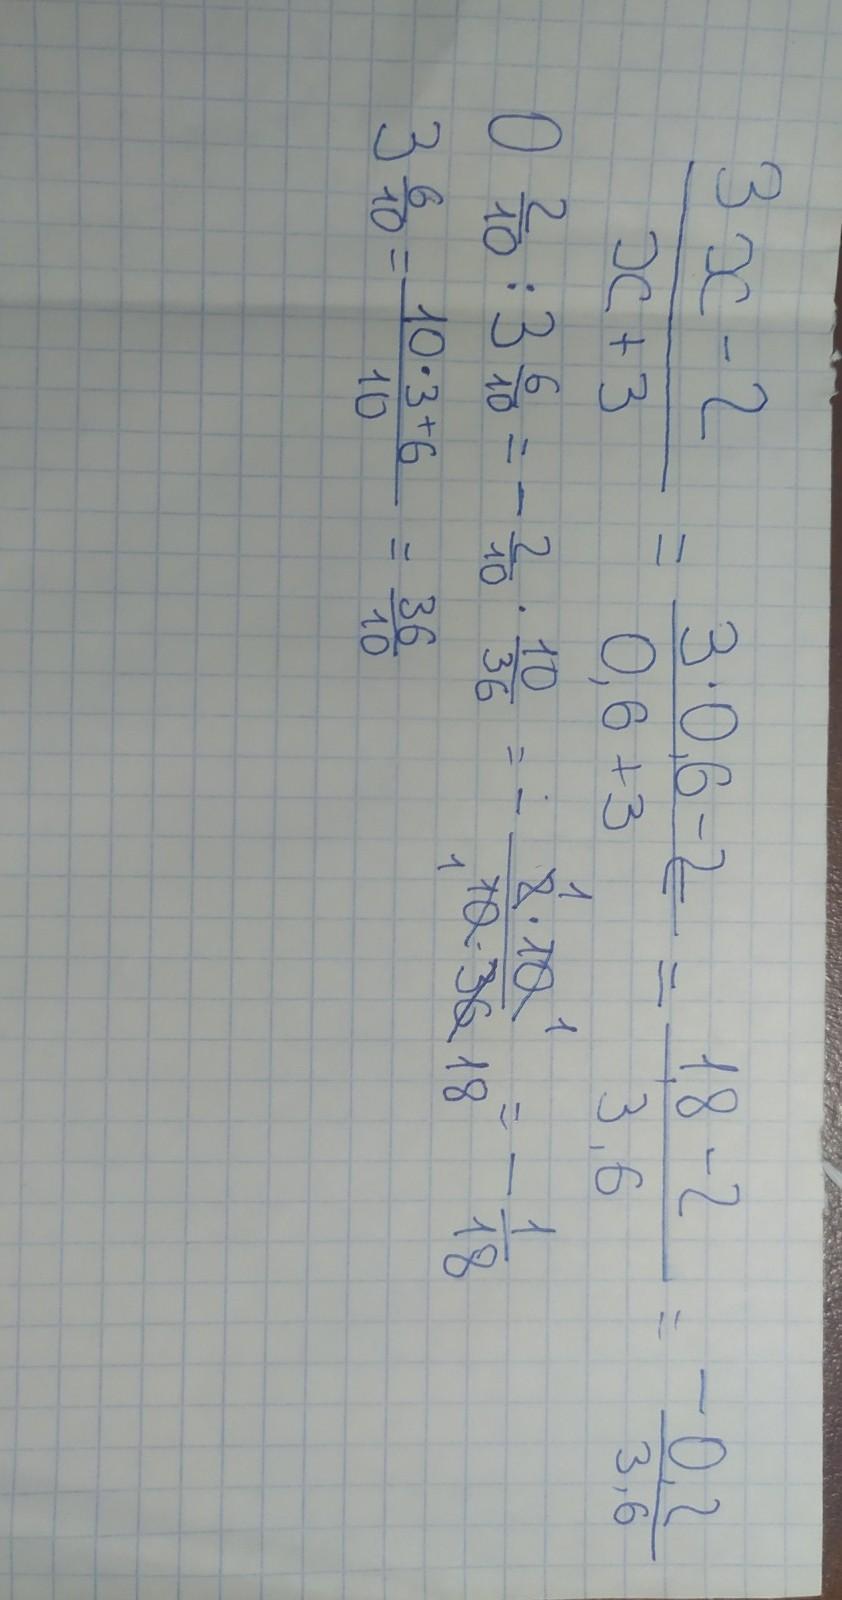 (3x - 2)/(x + 3) = (3 · 0,6 - 2)/(0,6 + 3) = (18 - 2)/(3,6) = - 0,2/3,6
0 2/10 : 3 6/10 = - 2/10 · 10/36 = - (2 · 10)/(10 · 36) 1 1 1 18 = - 1/18
3 6/10 = (10 · 3 + 6)/10 = 36/10